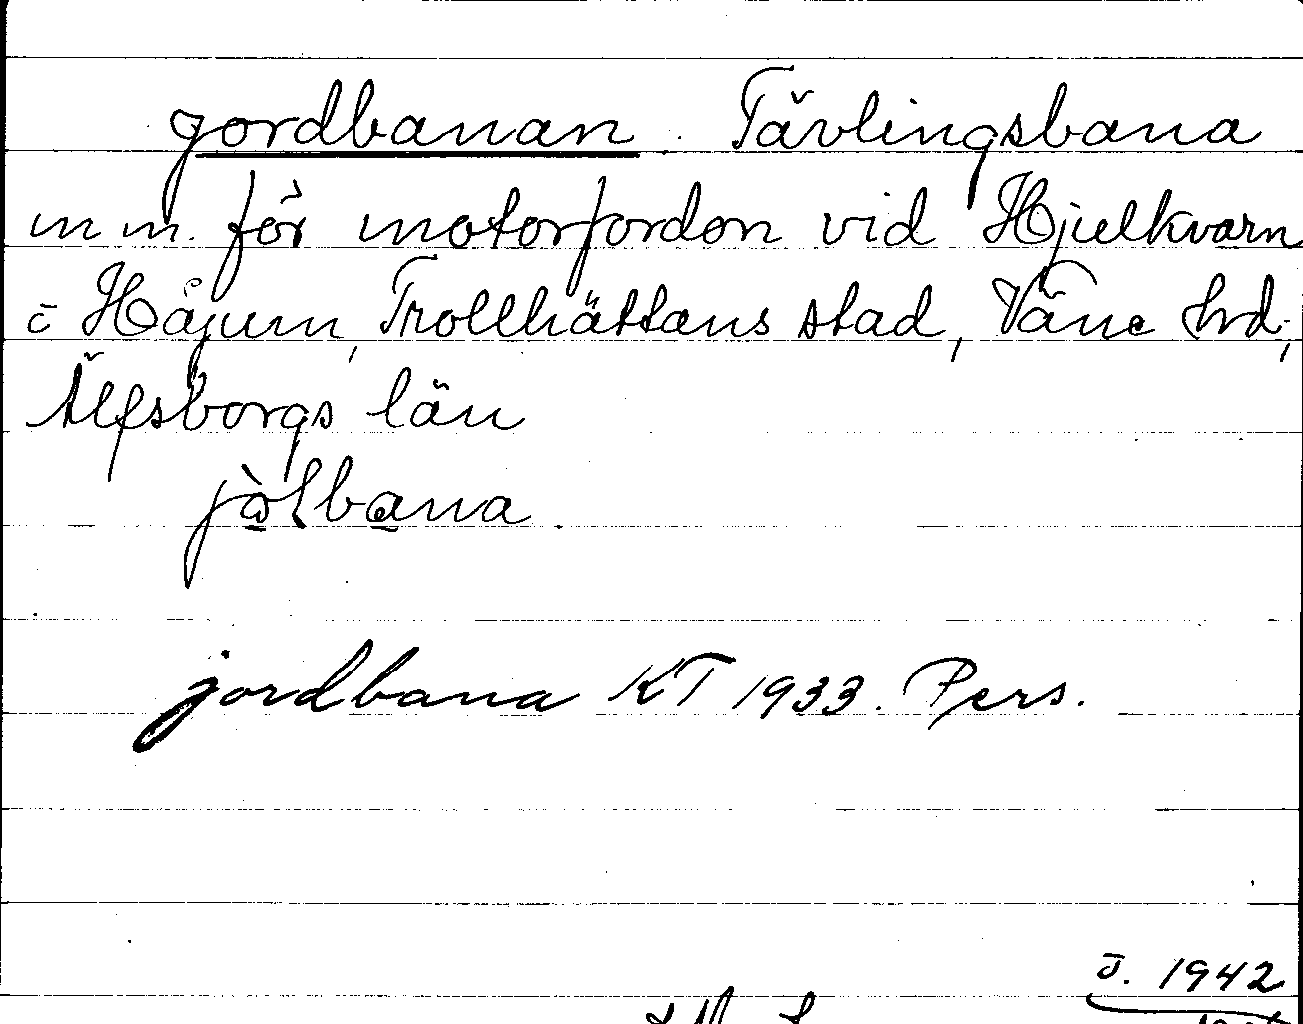 jordbanan. Tävlingsbana
m m. för motorfordon vid Hjulkvarn
i Håjum, Trollhättans stad, Väne hrd,
Älfsborgs län
jordbana KT 1933. Pers.
1942